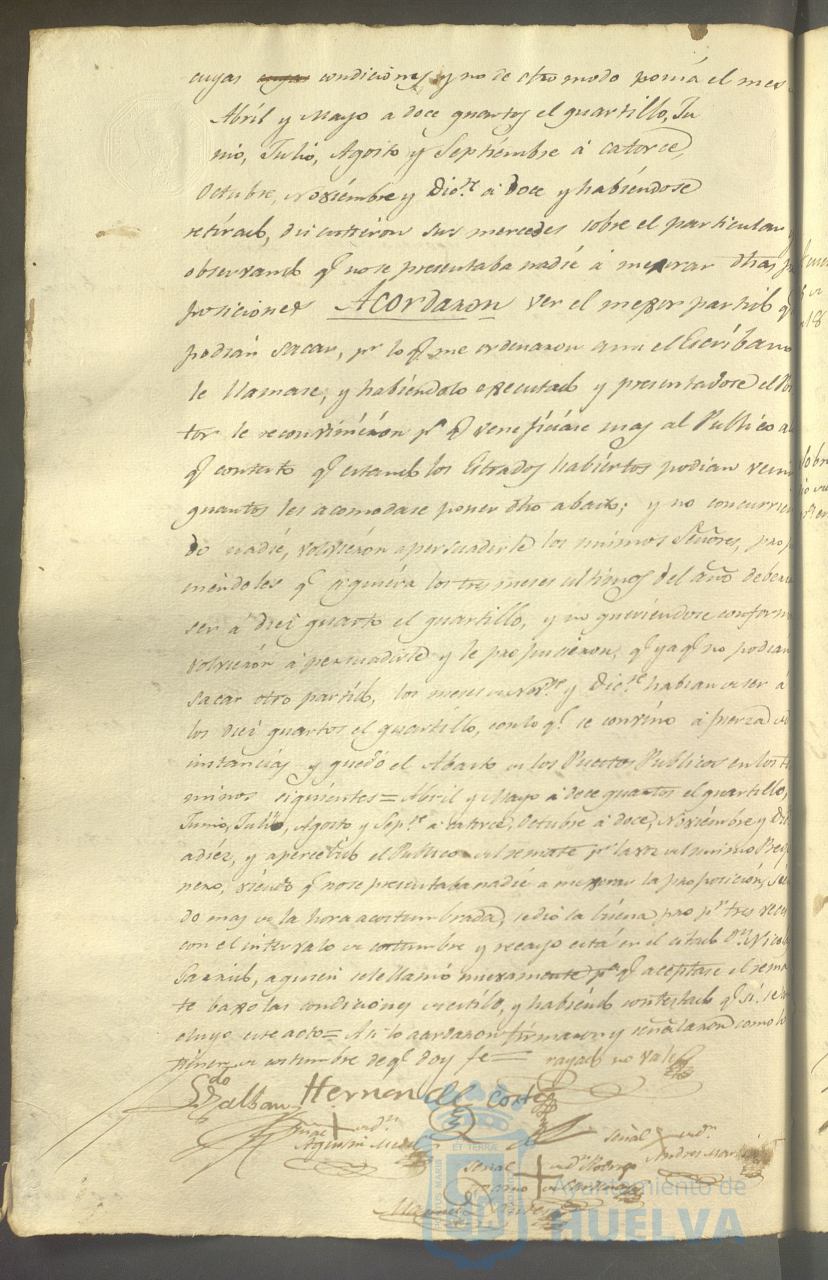 cuyas cuyas condiciones y no de otro modo ponia el mes
Abril y Mayo a doce quartos el quartillo, Ju
nio, Julio, Agosto y Septiembre á catorce,
Octubre, Noviembre y Dic.re á doce y habiendose
retirado, discutieron sus mercedes sobre el particular y
observando q.e no se presentaba nadie á mejorar dhas p
posiciones Acordaron ver el mejor partido q
podian sacar, pr lo q.e me ordenaron a mi el Escribano
le llamase, y habiendolo executado y presentadose el Po
tor le reconvinieron pa q.e veneficiase mas al Publico a
q.e contestó q.e estando los Estrados habiertos podian venir
quantos les acomodase poner dho abasto; y no concurrien
do nadie, volvieron a persuadirle los mismos Señores, prop
niendoles q.e siquiera los tres meses ultimos del año deberia
ser á diez quartos el quartillo, y no queriendose conform
volvieron á persuadirle y le propusieron, q.e ya q.e no podian
sacar otro partido, los meses de Nov.re y Dic.re habian de ser á
los diez quartos el quartillo, con lo q.e se convino á fuerza de
instancias y quedó el Abasto de los Puestos Publicos en los te
minos siguientes = Abril y Mayo á doce quartos el quartillo,
Junio, Julio, Agosto y Sep.re á catorce, Octubre á doce, Noviembre y Di
a diez, y apercebido el Publico del remate pr la voz del mismo Preg
nero, viendo q.e no se presentaba nadie a mejorar la proposicion, sie
do mas de la hora acostumbrada, se dió la buena pro pr tres veces
con el intervalo de costumbre y recayo esta en el citado Dn Nicol
a quien se le llamó nuevamente pa q.e aceptase el rema
te baxo las condiciones de estilo, y habiendo contestado q.e si, se co
cluyo este acto = Asi lo acordaron firmaron y señalaron como lo
tienen de costumbre de q.e doy fe = rayado no vale
Hernan
señal de Dn
Agustin
señal de Dn
Andres
señal de Dn
como
Manuel
Ayuntamiento de
HUELVA